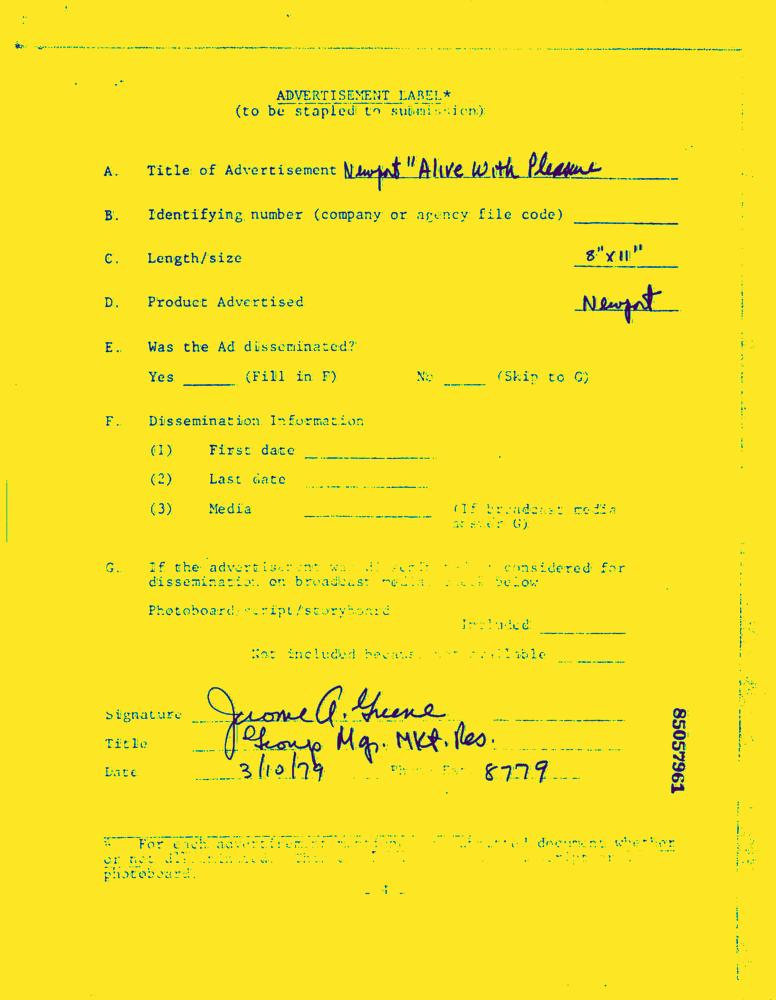 ADVERTISEMENT LABEL*
(to be stapled to submission)
A. Title of Advertisement Newport "Alive With Pleasure
B. Identifying number (company or agency file code)
C. Length/size 8"x11"
D. Product Advertised Newport
E. Was the Ad disseminated?
Yes ______ (Fill in F) No _____ (Skip to G)
F. Dissemination Information
(1) First date
(2) Last date
(3) Media (If broadcast media
answer G)
G. If the advertisement was considered for
dissemination on broadcast media, check below
Photoboard/script/storyboard
Included
Not included because not available
Signature Jerome A. Greene
Title Group Mgr. Mkt. Res.
Date 3/10/79 8779
85057961
* For each advertisement document whether
or not
photoboard.
- 4 -